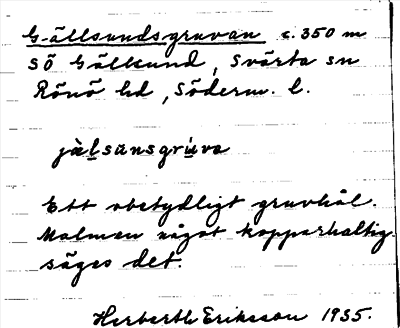 Gällsundsgruvan c. 350 m
SÖ Gällsund, Svärta sn
Rönö hd, Söderm. l.
jàlsunsgrùva
Ett obetydligt gruvhål.
Malmen något kopparhaltig
säges det.
Herberth Eriksson 1935.